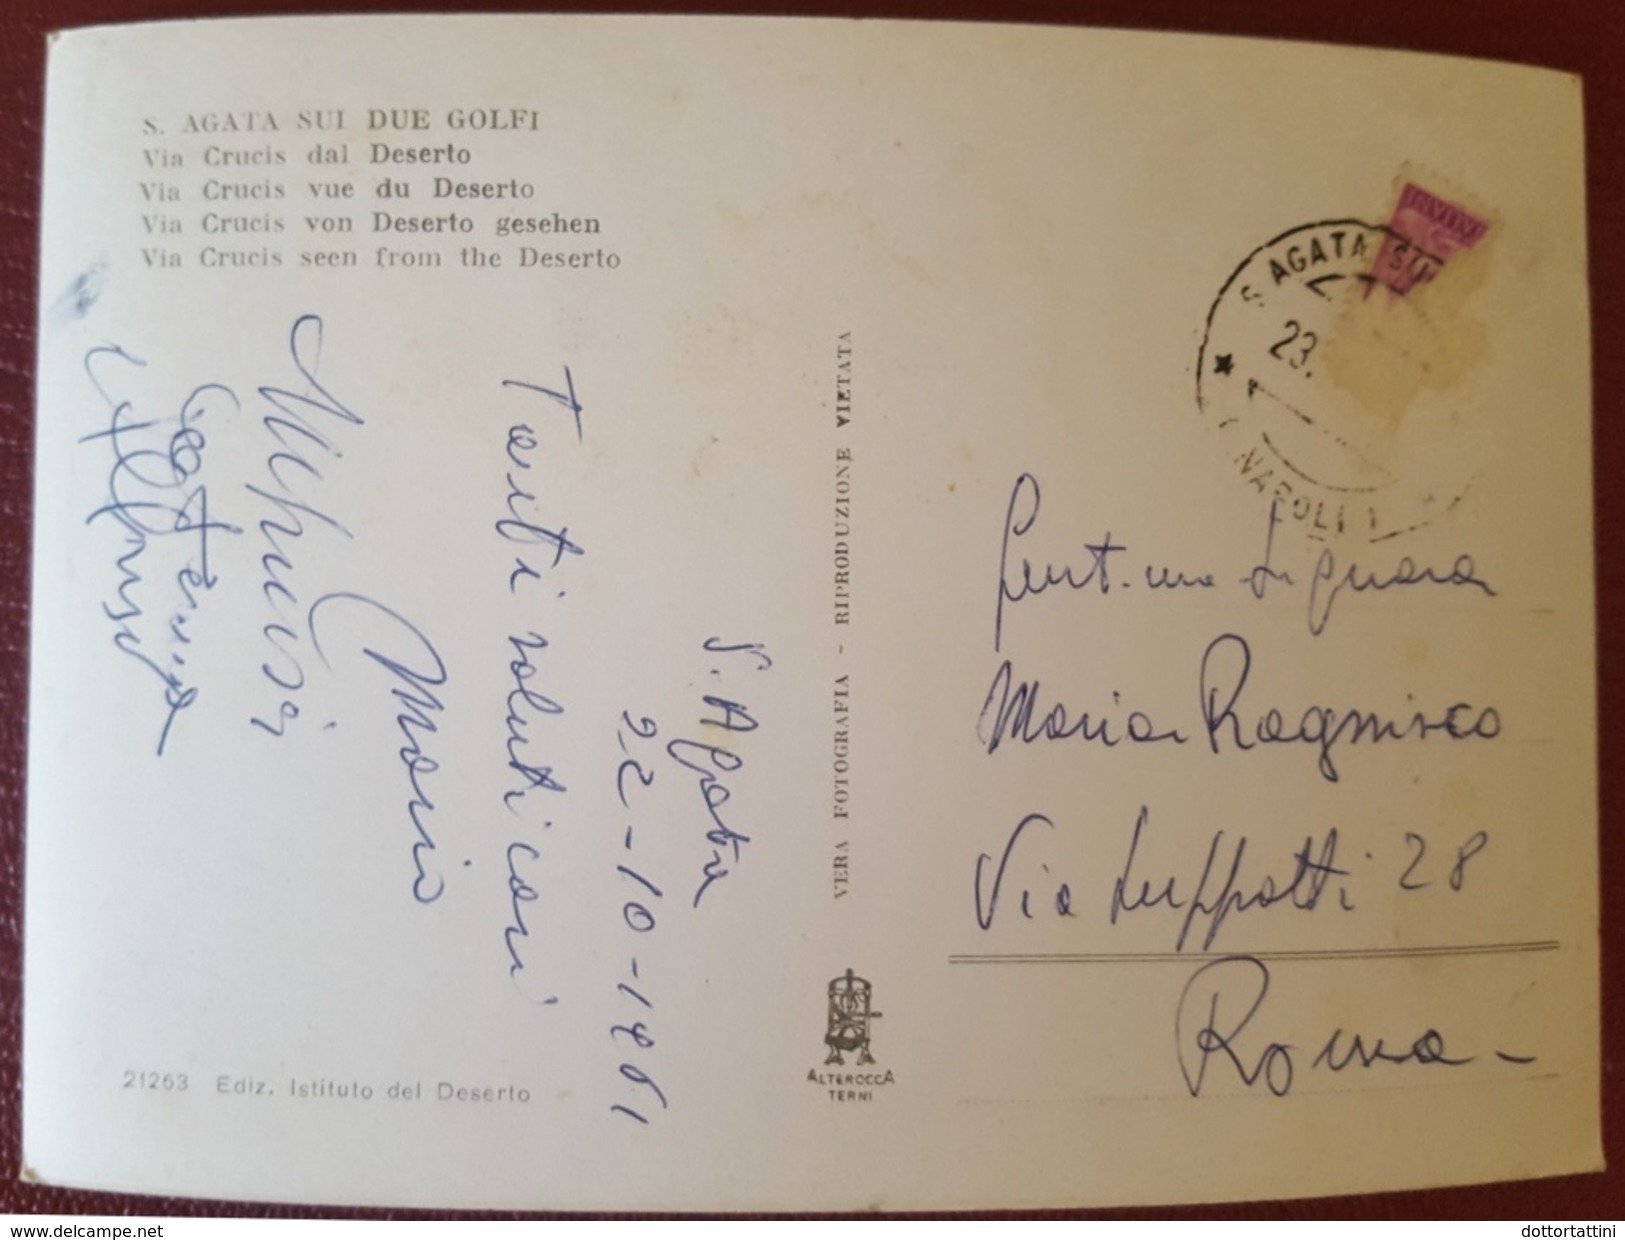 S. AGATA SUI DUE GOLFI
Via Crucis dal Deserto
Via Crucis vue du Deserto
Via Crucis von Deserto gesehen
Via Crucis seen from the Deserto
S. Agata
22-10-1961
Tanti saluti cari
Maria
Caterina
21263 Ediz. Istituto del Deserto
VERA FOTOGRAFIA - RIPRODUZIONE VIETATA
ALTEROCCA
TERNI
S. AGATA SUI
23.
NAPOLI
Gent.ma Signora
Maria Ragnisco
Via 28
Roma -
delcampe.net
dottortattini